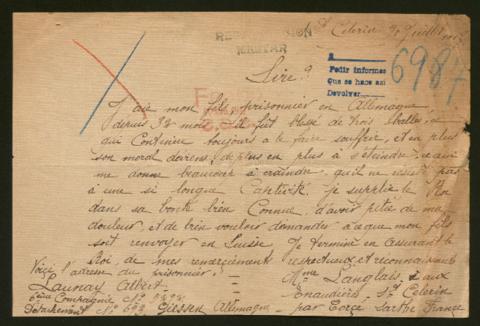 St Celerin 30 Juillet
Pedir informes
que se hace asi
Devolver
6987
Sire
J'aie mon fils prisonnier en Allemagne
depuis 32 mois il fût blessé de trois balles, ce
qui continue toujours a le faire souffrir, et en plus
son moral de plus en plus à s'éteindre, ce qui
me donne beaucoup à craindre, qu'il ne resiste pas
à une si longue captivité. Je supplie le Roi
dans sa bonté bien connue, d'avoir pitié de ma
douleur, et de bien vouloir demander à ce que mon fils
soit renvoyer en Suisse. Je termine en assurant le
Roi, de mes remerciements respectueux et reconnaissants
Voici l'adresse du prisonnier :
Mme Langlais, aux
Launay Albert
Enaudières St Celerin
6ème Compagnie No
par Torcé Sarthe France
Détachement No Giessen Allemagne